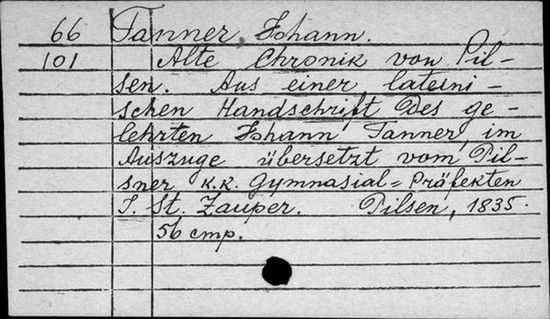 66 Tanner, Johann.
101 Alte Chronik von Pil-
sen. Aus einer lateini-
schen Handschrift des ge-
lehrten Johann Tanner, im
Auszuge übersetzt vom Pil-
sner k.k. Gymnasial=Präfekten
J. St. Zauper. Pilsen, 1835.
56 стр.